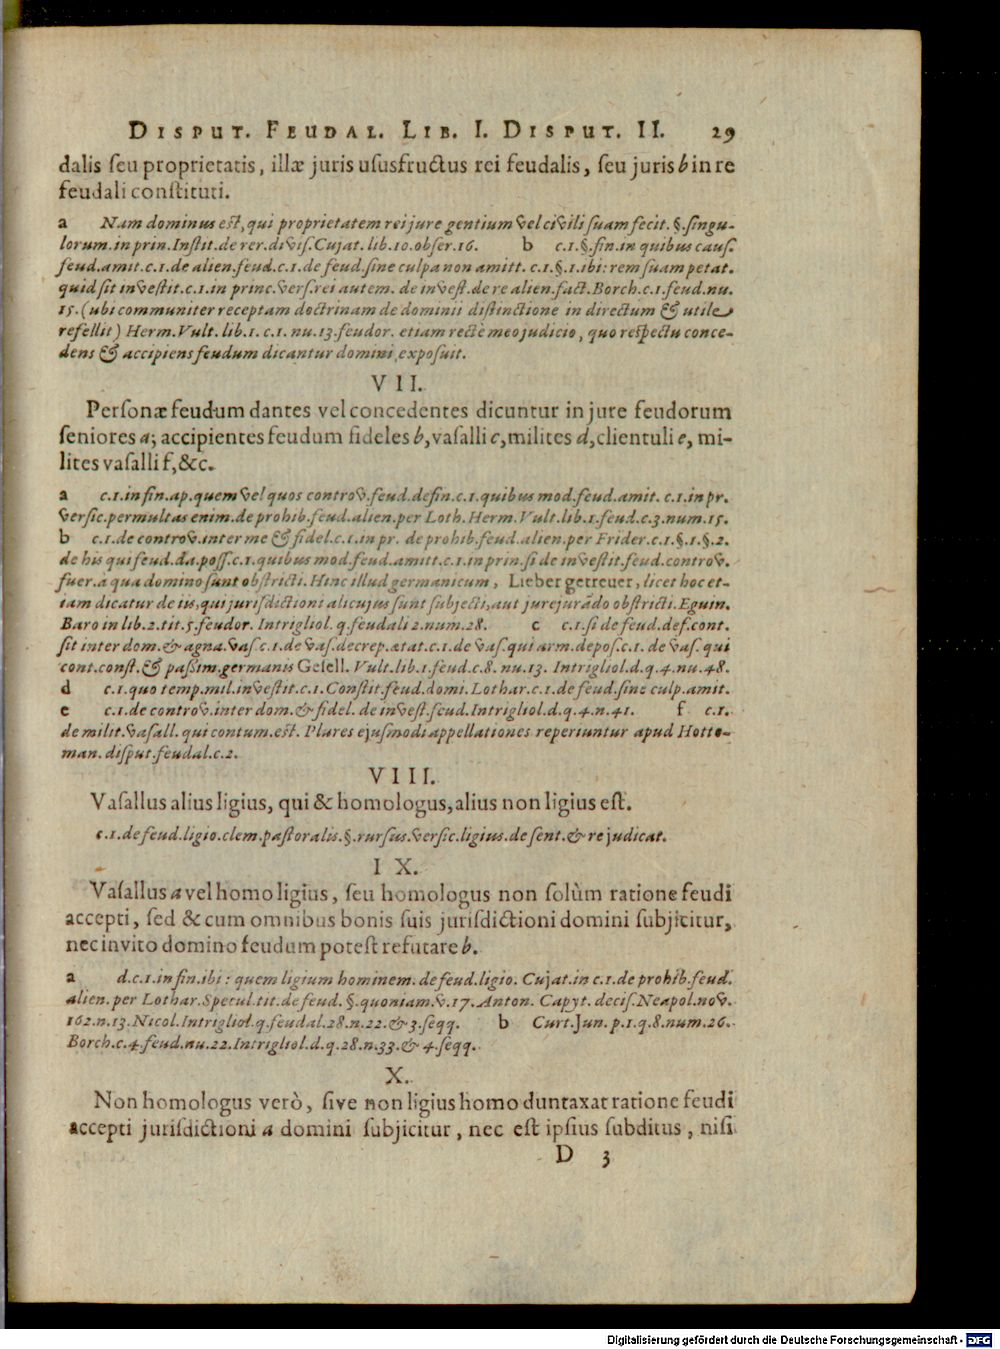 DISPUT. FEUDAL. LIB. I. DISPUT. II. 29
dalis ſeu proprietatis, illæ juris uſusfructus rei feudalis, ſeu juris b in re
feudali conſtituti.
a Nam dominus eſt, qui proprietatem rei jure gentium vel civili ſuam fecit. §. ſingu-
lorum. in prin. Inſtit. de rer. diviſ. Cujat. lib. 10. obſer. 16. b c. 1. §. fin. in quibus cauſ.
feud. amit. c. 1. de alien. feud. c. 1. de feud. ſine culpa non amitt. c. 1. §. 1. ibi: rem ſuam petat.
quid ſit inveſtit. c. 1. in princ. verſ. rei autem. de inveſt. de re alien. fact. Borch. c. 1. feud. nu.
15. (ubi communiter receptam doctrinam de dominii diſtinctione in directum & utile
refellit) Herm. Vult. lib. 1. c. 1. nu. 13. feudor. etiam rectè meo judicio, quo reſpectu conce-
dens & accipiens feudum dicantur domini, expoſuit.
VII.
Perſonæ feudum dantes vel concedentes dicuntur in jure feudorum
ſeniores a; accipientes feudum fideles b, vaſalli c, milites d, clientuli e, mi-
lites vaſalli f, &c.
a c. 1. in fin. ap. quem vel quos controv. feud. defin. c. 1. quibus mod. feud. amit. c. 1. in pr.
verſic. permultas enim. de prohib. feud. alien. per Loth. Herm. Vult. lib. 1. feud. c. 3. num. 15.
b c. 1. de controv. inter me & fidel. c. 1. in pr. de prohib. feud. alien. per Frider. c. 1. §. 1. §. 2.
de his qui feud. da. poſſ. c. 1. quibus mod. feud. amitt. c. 1. in prin. ſi de inveſtit. feud. controv.
fuer. à qua domino ſunt obſtricti. Hinc illud germanicum, Lieber getreuer, licet hoc et-
iam dicatur de iis, qui jurisdictioni alicujus ſunt ſubjecti, aut jurejurãdo obſtricti. Eguin.
Baro in lib. 2. tit. 5. feudor. Intrigliol. q. feudali 2. num. 28. c c. 1. ſi de feud. def. cont.
ſit inter dom. & agna. vaſ. c. 1. de vaſ. decrep. ætat. c. 1. de vaſ. qui arm. depoſ. c. 1. de vaſ. qui
cont. conſt. & paßim. germanis Geſell. Vult. lib. 1. feud. c. 8. nu. 13. Intrigliol. d. q. 4. nu. 48.
d c. 1. quo temp. mil. inveſtit. c. 1. Conſtit. feud. domi. Lothar. c. 1. de feud. ſine culp. amit.
e c. 1. de controv. inter dom. & fidel. de inveſt. feud. Intrigliol. d. q. 4. n. 41. f c. 1.
de milit. vaſall. qui contum. eſt. Plures ejuſmodi appellationes reperiuntur apud Hotto-
man. diſput. feudal. c. 2.
VIII.
Vaſallus alius ligius, qui & homologus, alius non ligius eſt.
c. 1. de feud. ligio. clem. paſtoralis. §. rurſus. verſic. ligius. de ſent. & re judicat.
IX.
Vaſallus a vel homo ligius, ſeu homologus non ſolùm ratione feudi
accepti, ſed & cum omnibus bonis ſuis jurisdictioni domini ſubjicitur,
nec invito domino feudum poteſt refutare b.
a d. c. 1. in fin. ibi: quem ligium hominem. de feud. ligio. Cujat. in c. 1. de prohib. feud.
alien. per Lothar. Specul. tit. de feud. §. quoniam. v. 17. Anton. Capyt. deciſ. Neapol. nov.
162. n. 13. Nicol. Intrigliol. q. feudal. 28. n. 22. & 3. ſeqq. b Curt. Jun. p. 1. q. 8. num. 26.
Borch. c. 4. feud. nu. 22. Intrigliol. d. q. 28. n. 33. & 4. ſeqq.
X.
Non homologus verò, ſive non ligius homo duntaxat ratione feudi
accepti jurisdictioni a domini ſubjicitur, nec eſt ipſius ſubditus, niſi
D 3
Digitalisierung gefördert durch die Deutsche Forschungsgemeinschaft - DFG